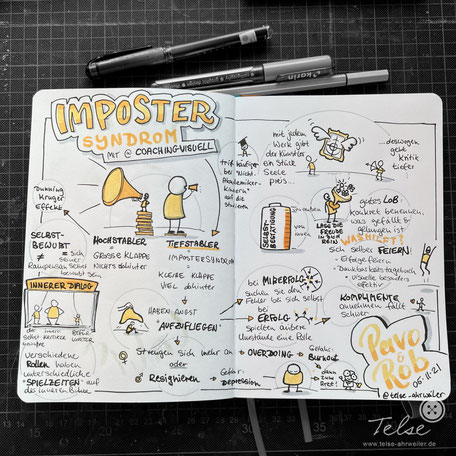 IMPOSTER
SYNDROM
MIT @ COACHING-VISUELL
Dunning
Kruger
effekt
SELBST-
BEWUßT
≠ = sich
seiner
selbst
bewußt sein
HOCHSTABLER
GROSSE KLAPPE
NICHTS dahinter
TIEFSTABLER
= IMPOSTERSYNDROM
KLEINE KLAPPE
VIEL dahinter
trifft häufiger
bei "Nicht-
Akademiker-
kindern"
auf die
Studieren
INNERER DIALOG
der innere
Kritiker
verschiedene
Rollen haben
unterschiedliche
"SPIELZEITEN" auf
der inneren Bühne
HABEN ANGST
"AUFZUFLIEGEN"
Strengen sich mehr an
oder
Resignieren
Gefahr:
Depression
mit jedem
Werk gibt
der Künstler
ein Stück
Seele
preis...
deswegen
geht
Kritik
tiefer
SELBST-
BESTÄTIGUNG
von
außen
LASS DIE
FREUDE
IN DEIN
HIRN
gutes LOB:
konkret benennen,
was gefällt &
gelungen ist
WAS HILFT?
sich selber FEIERN
- Erfolge feiern
- Dankbarkeitstagebuch
- visuelle übersicht
bei MIßERFOLG
suchen sie den
Fehler bei sich selbst
bei
ERFOLG
spielten andere
Umstände eine Rolle
KOMPLIMENTE
annehmen fällt
schwer
OVERDOING
Gefahr:
Burnout
Pavo
& Rob
05.11.21
@telse_ahrweiler
karin
Telse
www.telse-ahrweiler.de